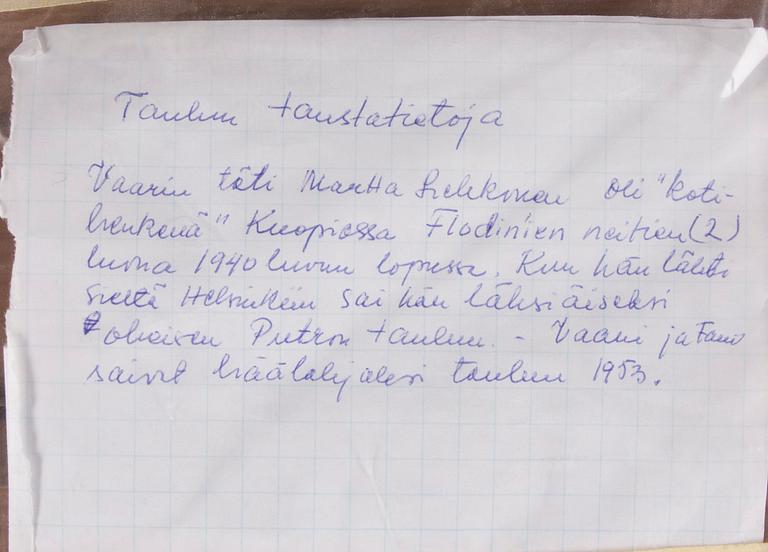 Taulun taustatietoja
Vaarin täti Martta Sulkonen oli "koti-
henkenä" Kuopiossa Flodin'ien neitien (2)
luona 1940 luvun lopussa. Kun hän lähti
sieltä Helsinkiin sai hän lähsiäiseksi
oheisen Putron taulun. - Vaari ja Famo
saivat häälahjaksi taulun 1953.